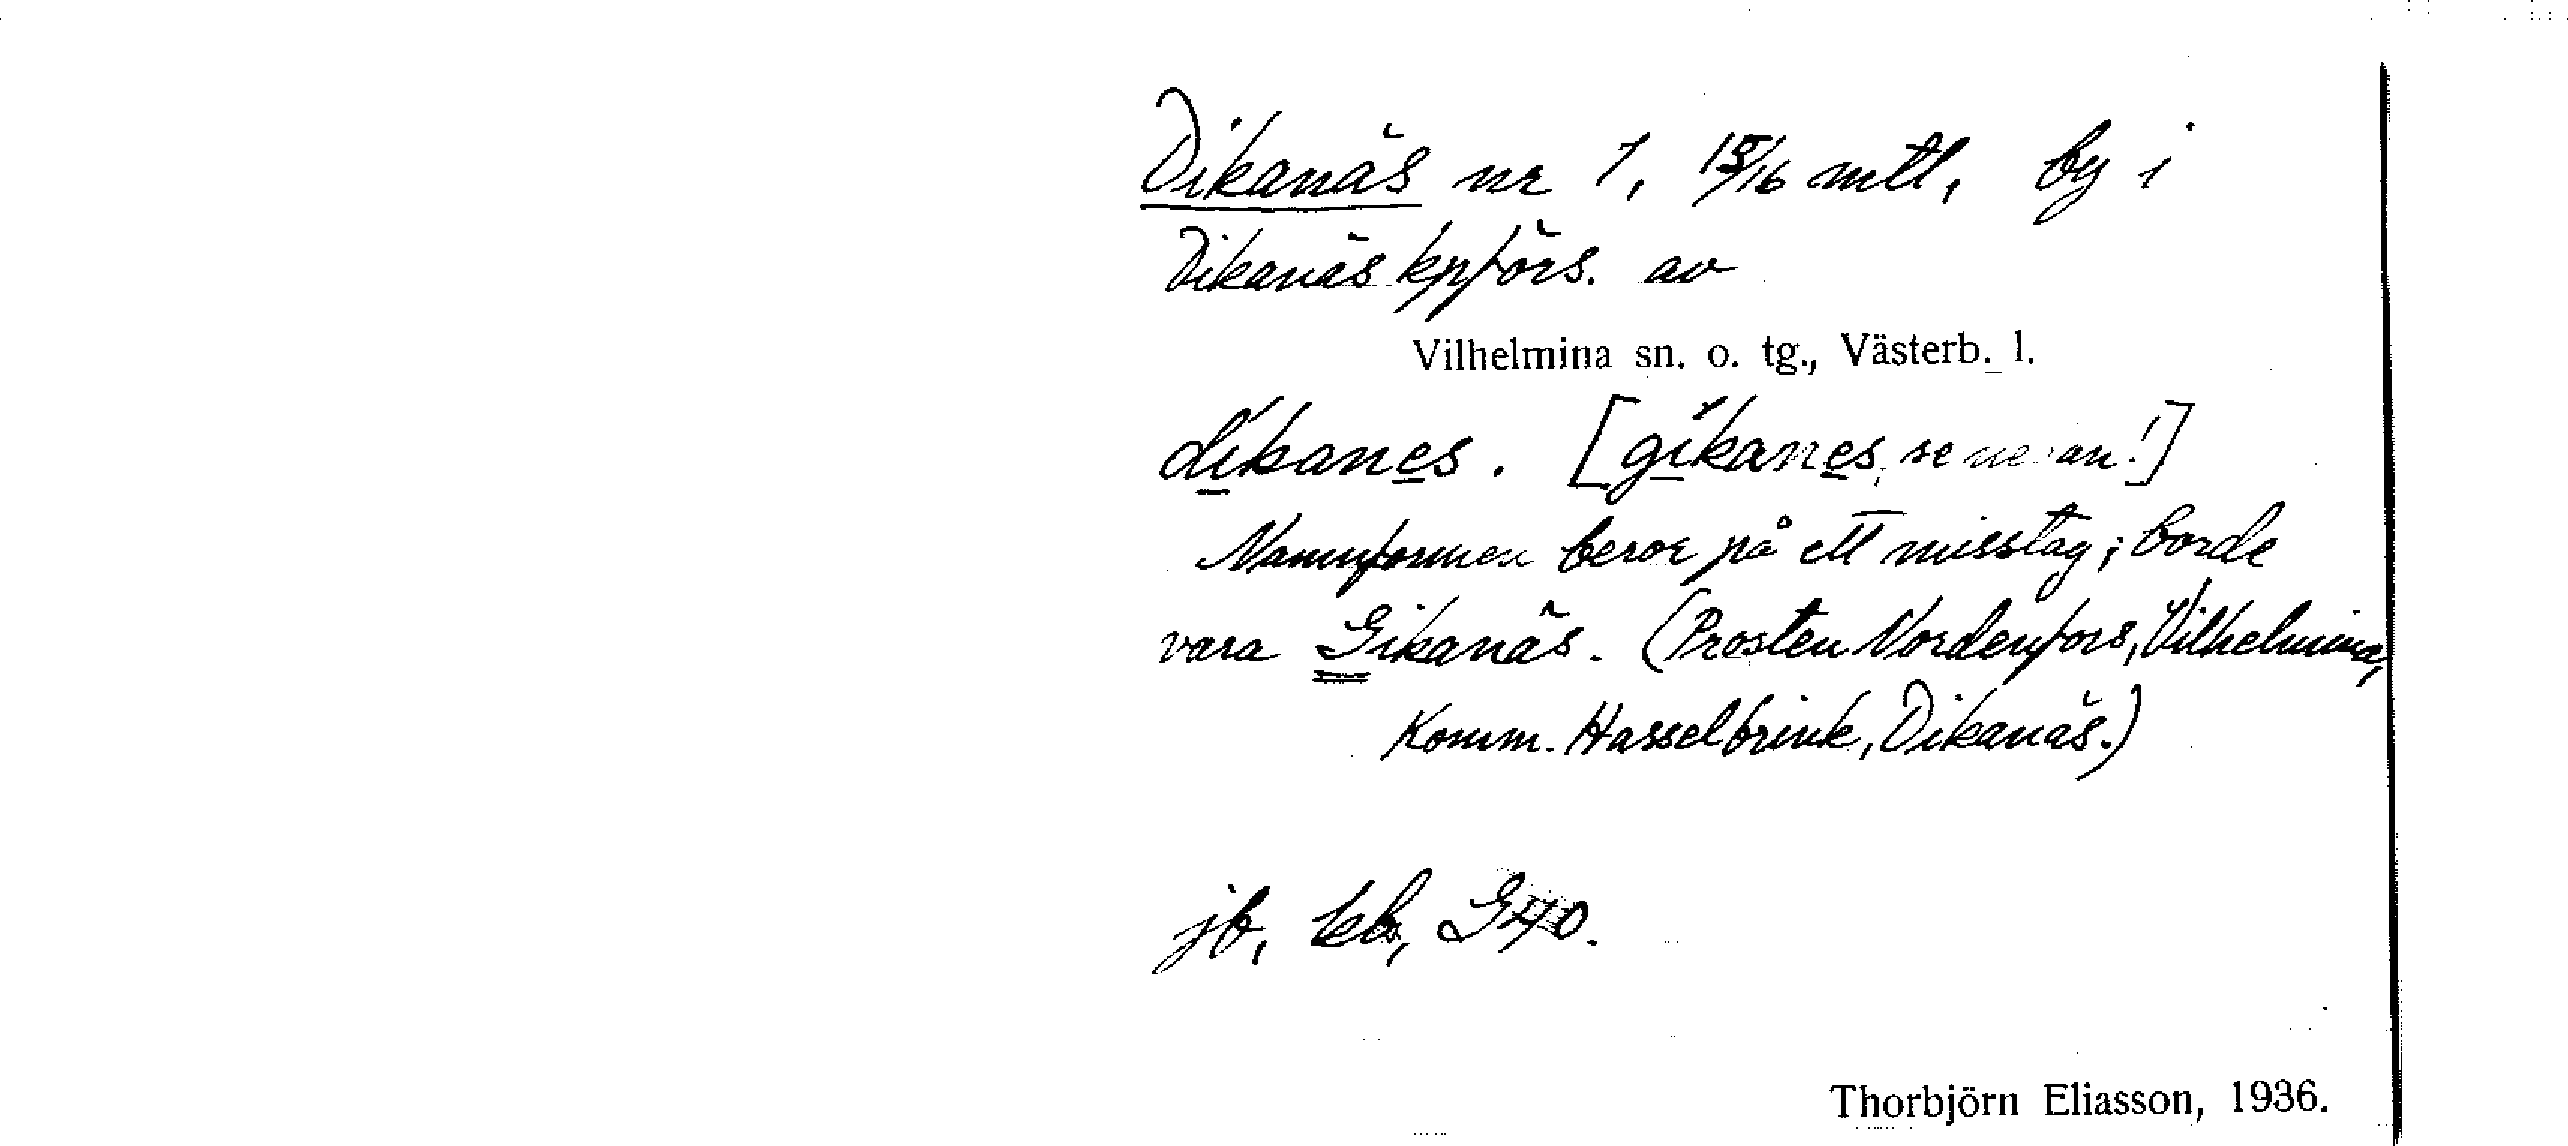 Dikanäs nr 1, 15/16 mtl, by i
Dikanäs kpförs. av
Vilhelmina sn. o. tg., Västerb. l.
dikanes. [gikanes, se nedan!]
Namnformen beror på ett misstag; borde
vara Gikanäs. (Prosten Nordenfors, Vilhelmina,
Komm. Hasselbrink, Dikanäs.)
jb, kb, G40.
Thorbjörn Eliasson, 1936.